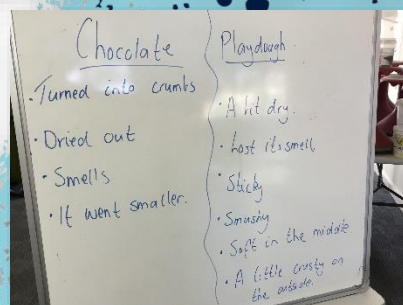 Chocolate
· Turned into crumbs
· Dried out
· Smells
· It went smaller.
Playdough
· A bit dry.
· Lost its smell
· Sticky
· Smushy
· Soft in the middle
· A little crusty on
the outside.